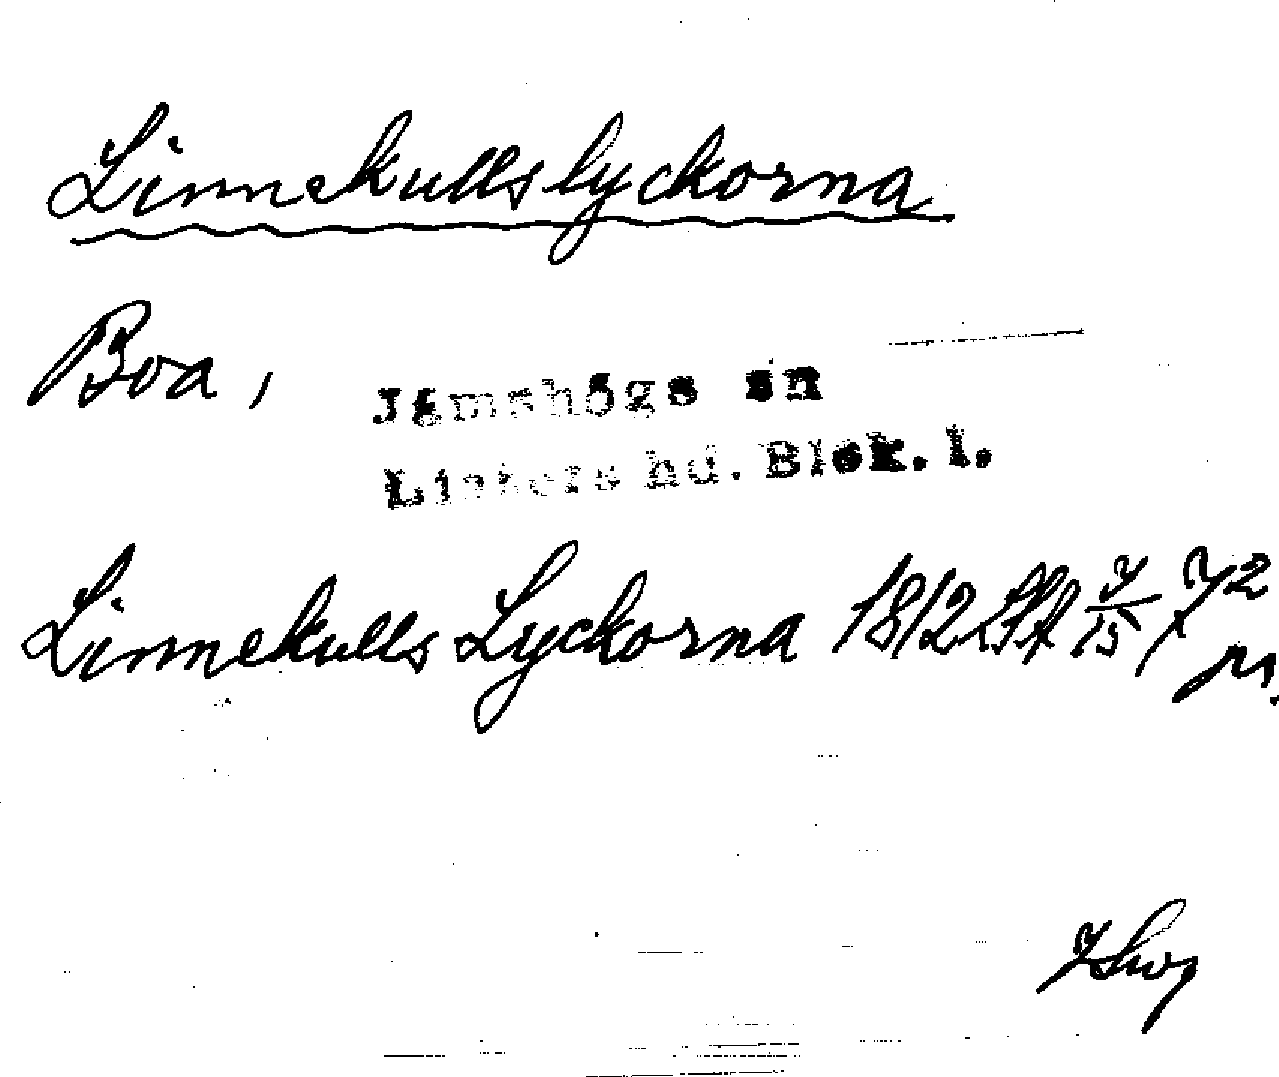 Linnekullslyckorna
Boa,
Jämshögs sn
Listers hd. Blek. l.
Linnekulls Lyckorna 1812